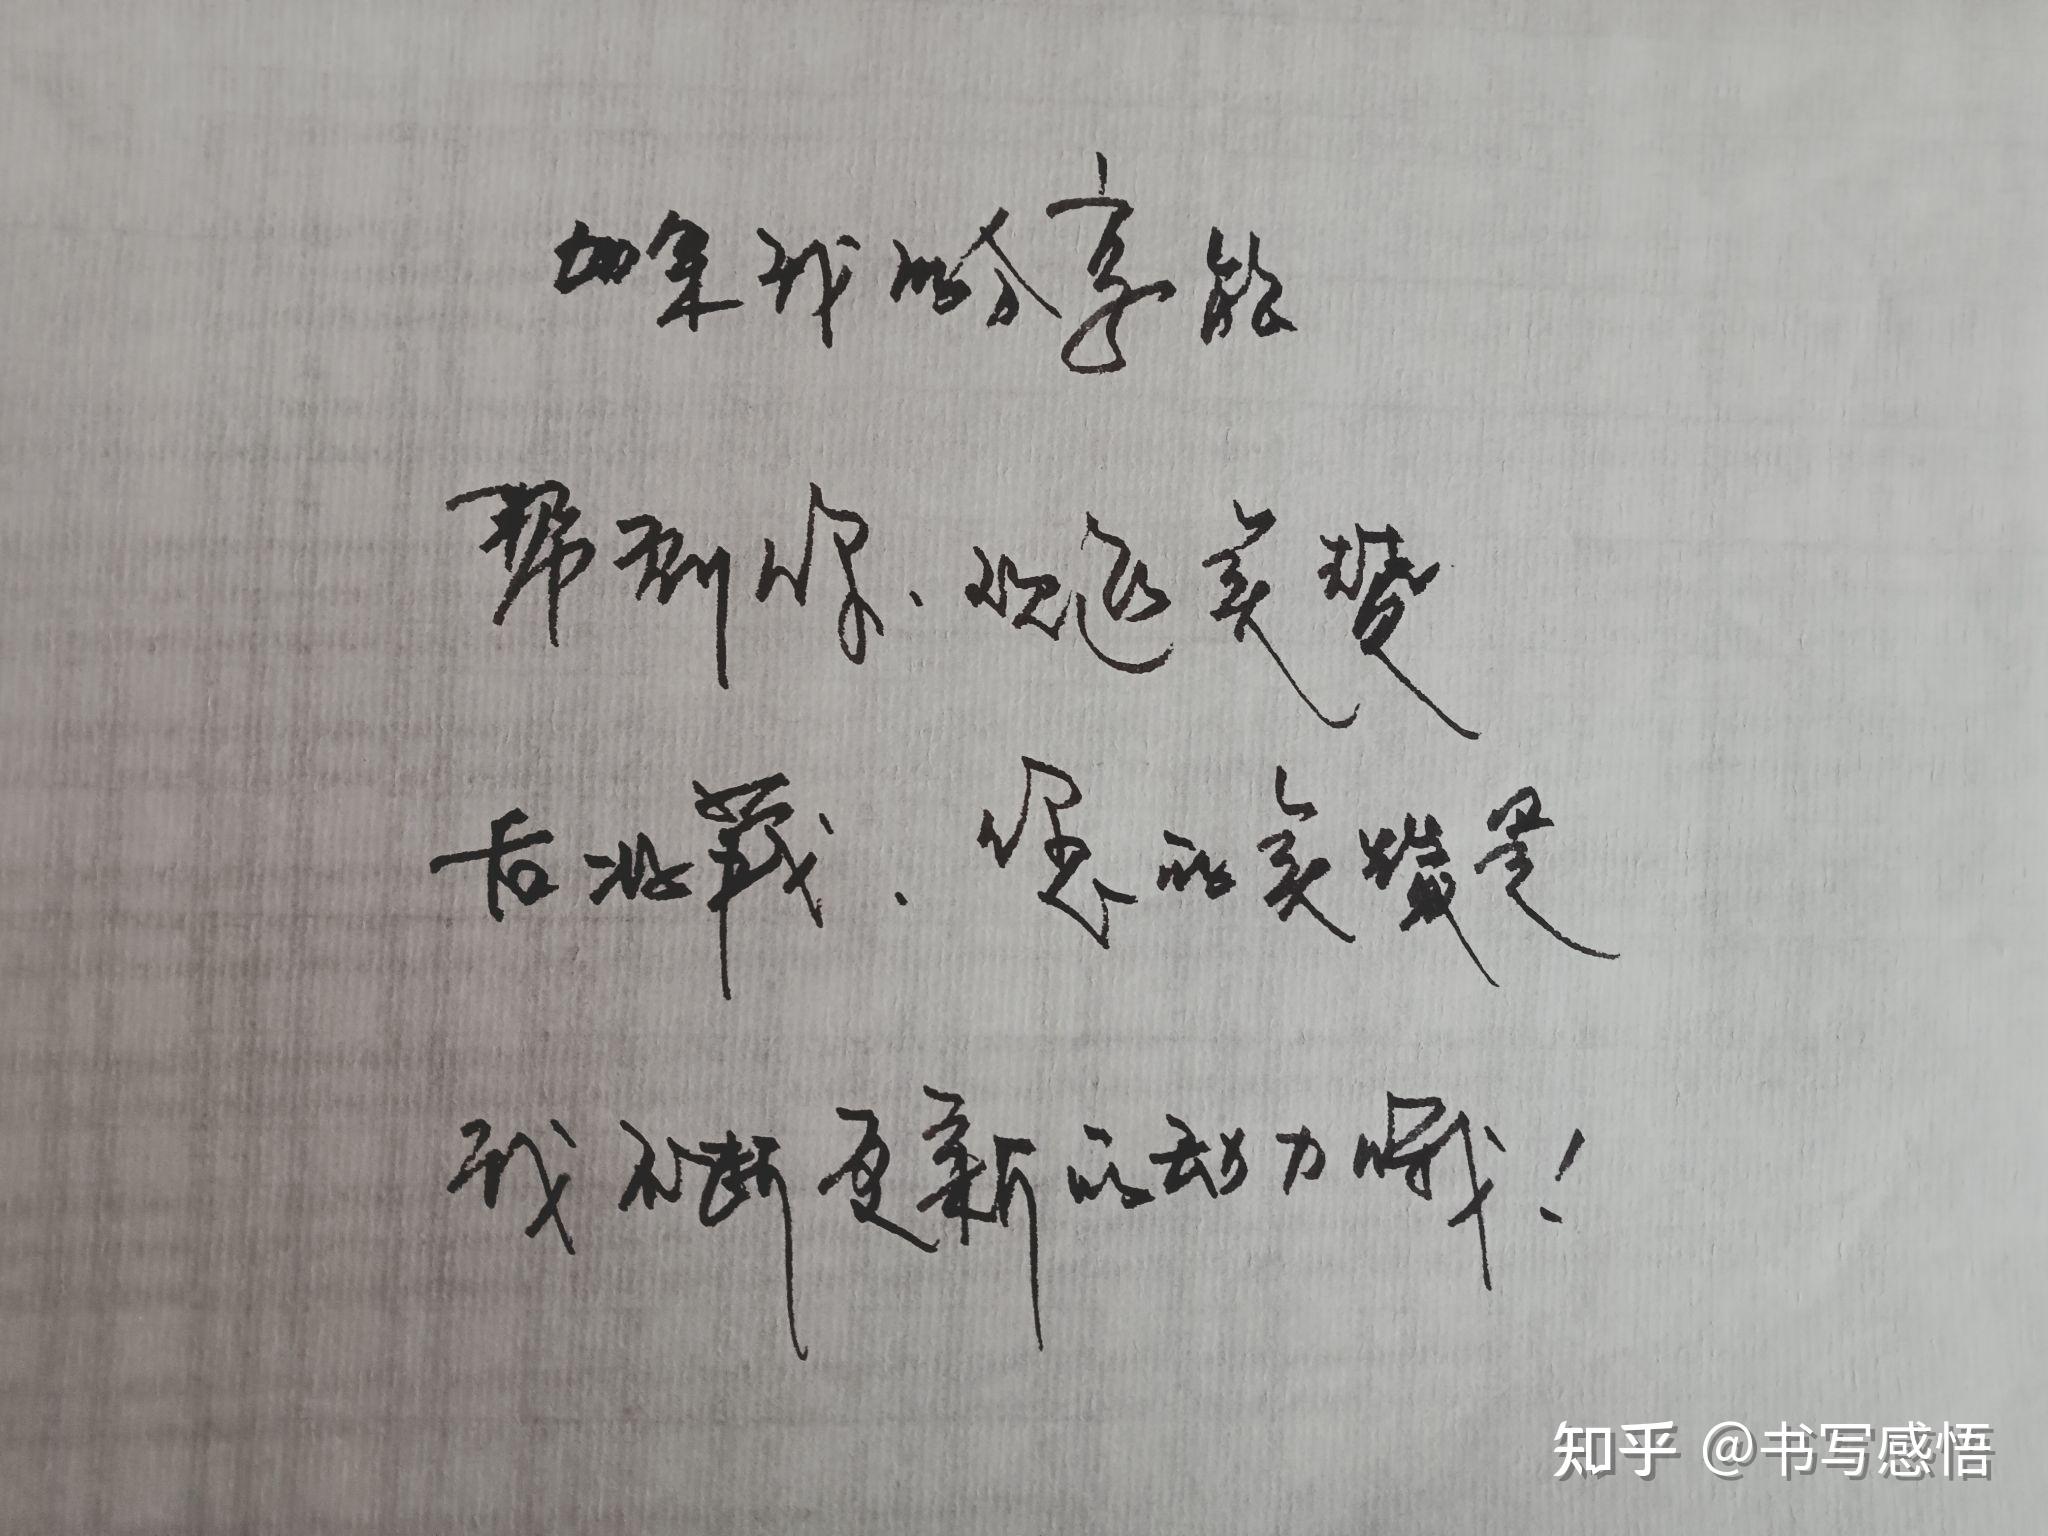 如果我的分享能
帮到你、欢迎关赞
右收藏、您的关赞是
我不断更新的动力哦！
知乎 @书写感悟